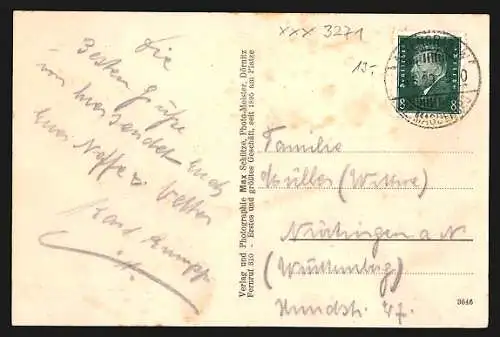 xxx 3271
15,-
Die
Besten Grüße
von hier sendet Euch
Euer Neffe u. Vetter
Karl
Verlag und Photographie Max Schütze, Photo-Meister, Dömitz
Fernruf 350 - Erstes und größtes Geschäft, seit 1895 am Platze
8 8
Familie
Müller (Witwe)
Nürtingen a N
(Württemberg)
Hundstr. 47.
3646